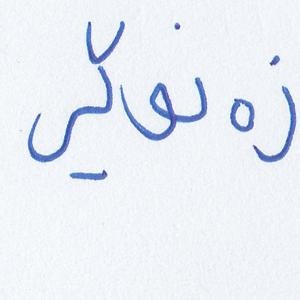 زه نوگیر